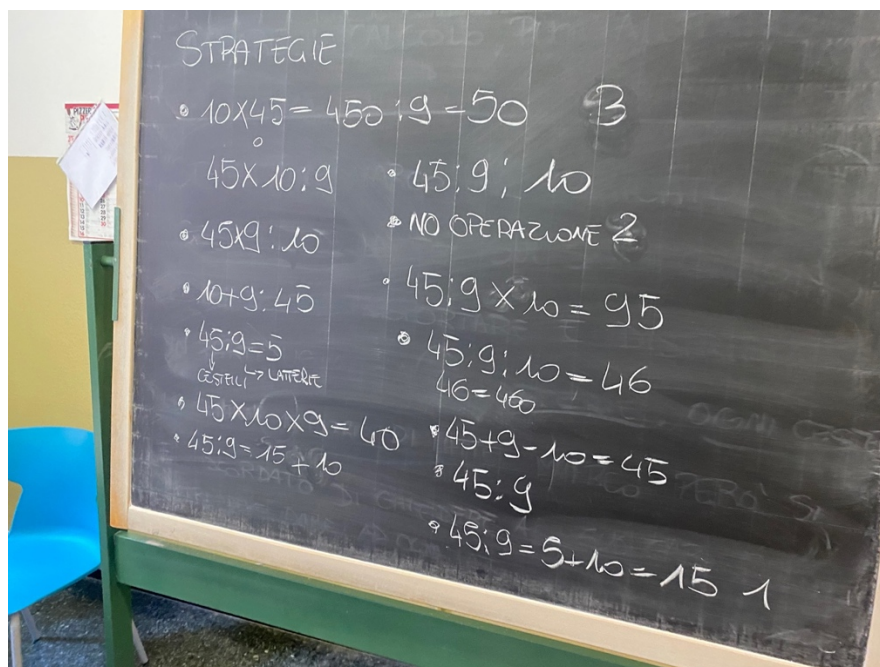 STRATEGIE
• 10X45 = 450 : 9 = 50 3
o
45X10:9
• 45X9:10
• 10+9:45
• 45:9=5
CESTELLI → LATTERIE
• 45X10X9=40
• 45:9=15+10
• 45:9:10
• NO OPERAZIONE 2
• 45:9X10=95
• 45:9:10=46
46=460
• 45+9-10=45
• 45:9
• 45:9=5+10=15 1